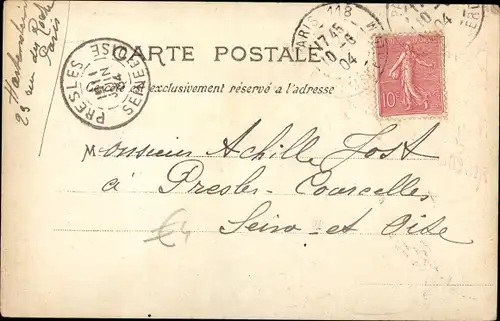 23 rue du
Paris
PARIS 118
17 45
10 - 5
04
CARTE POSTALE
PRESLES
SEINE ET OISE
Ce côté est exclusivement réservé a l'adresse
10
Monsieur Achille Jost
à Presles-Courcelles
Seine-et-Oise
€4